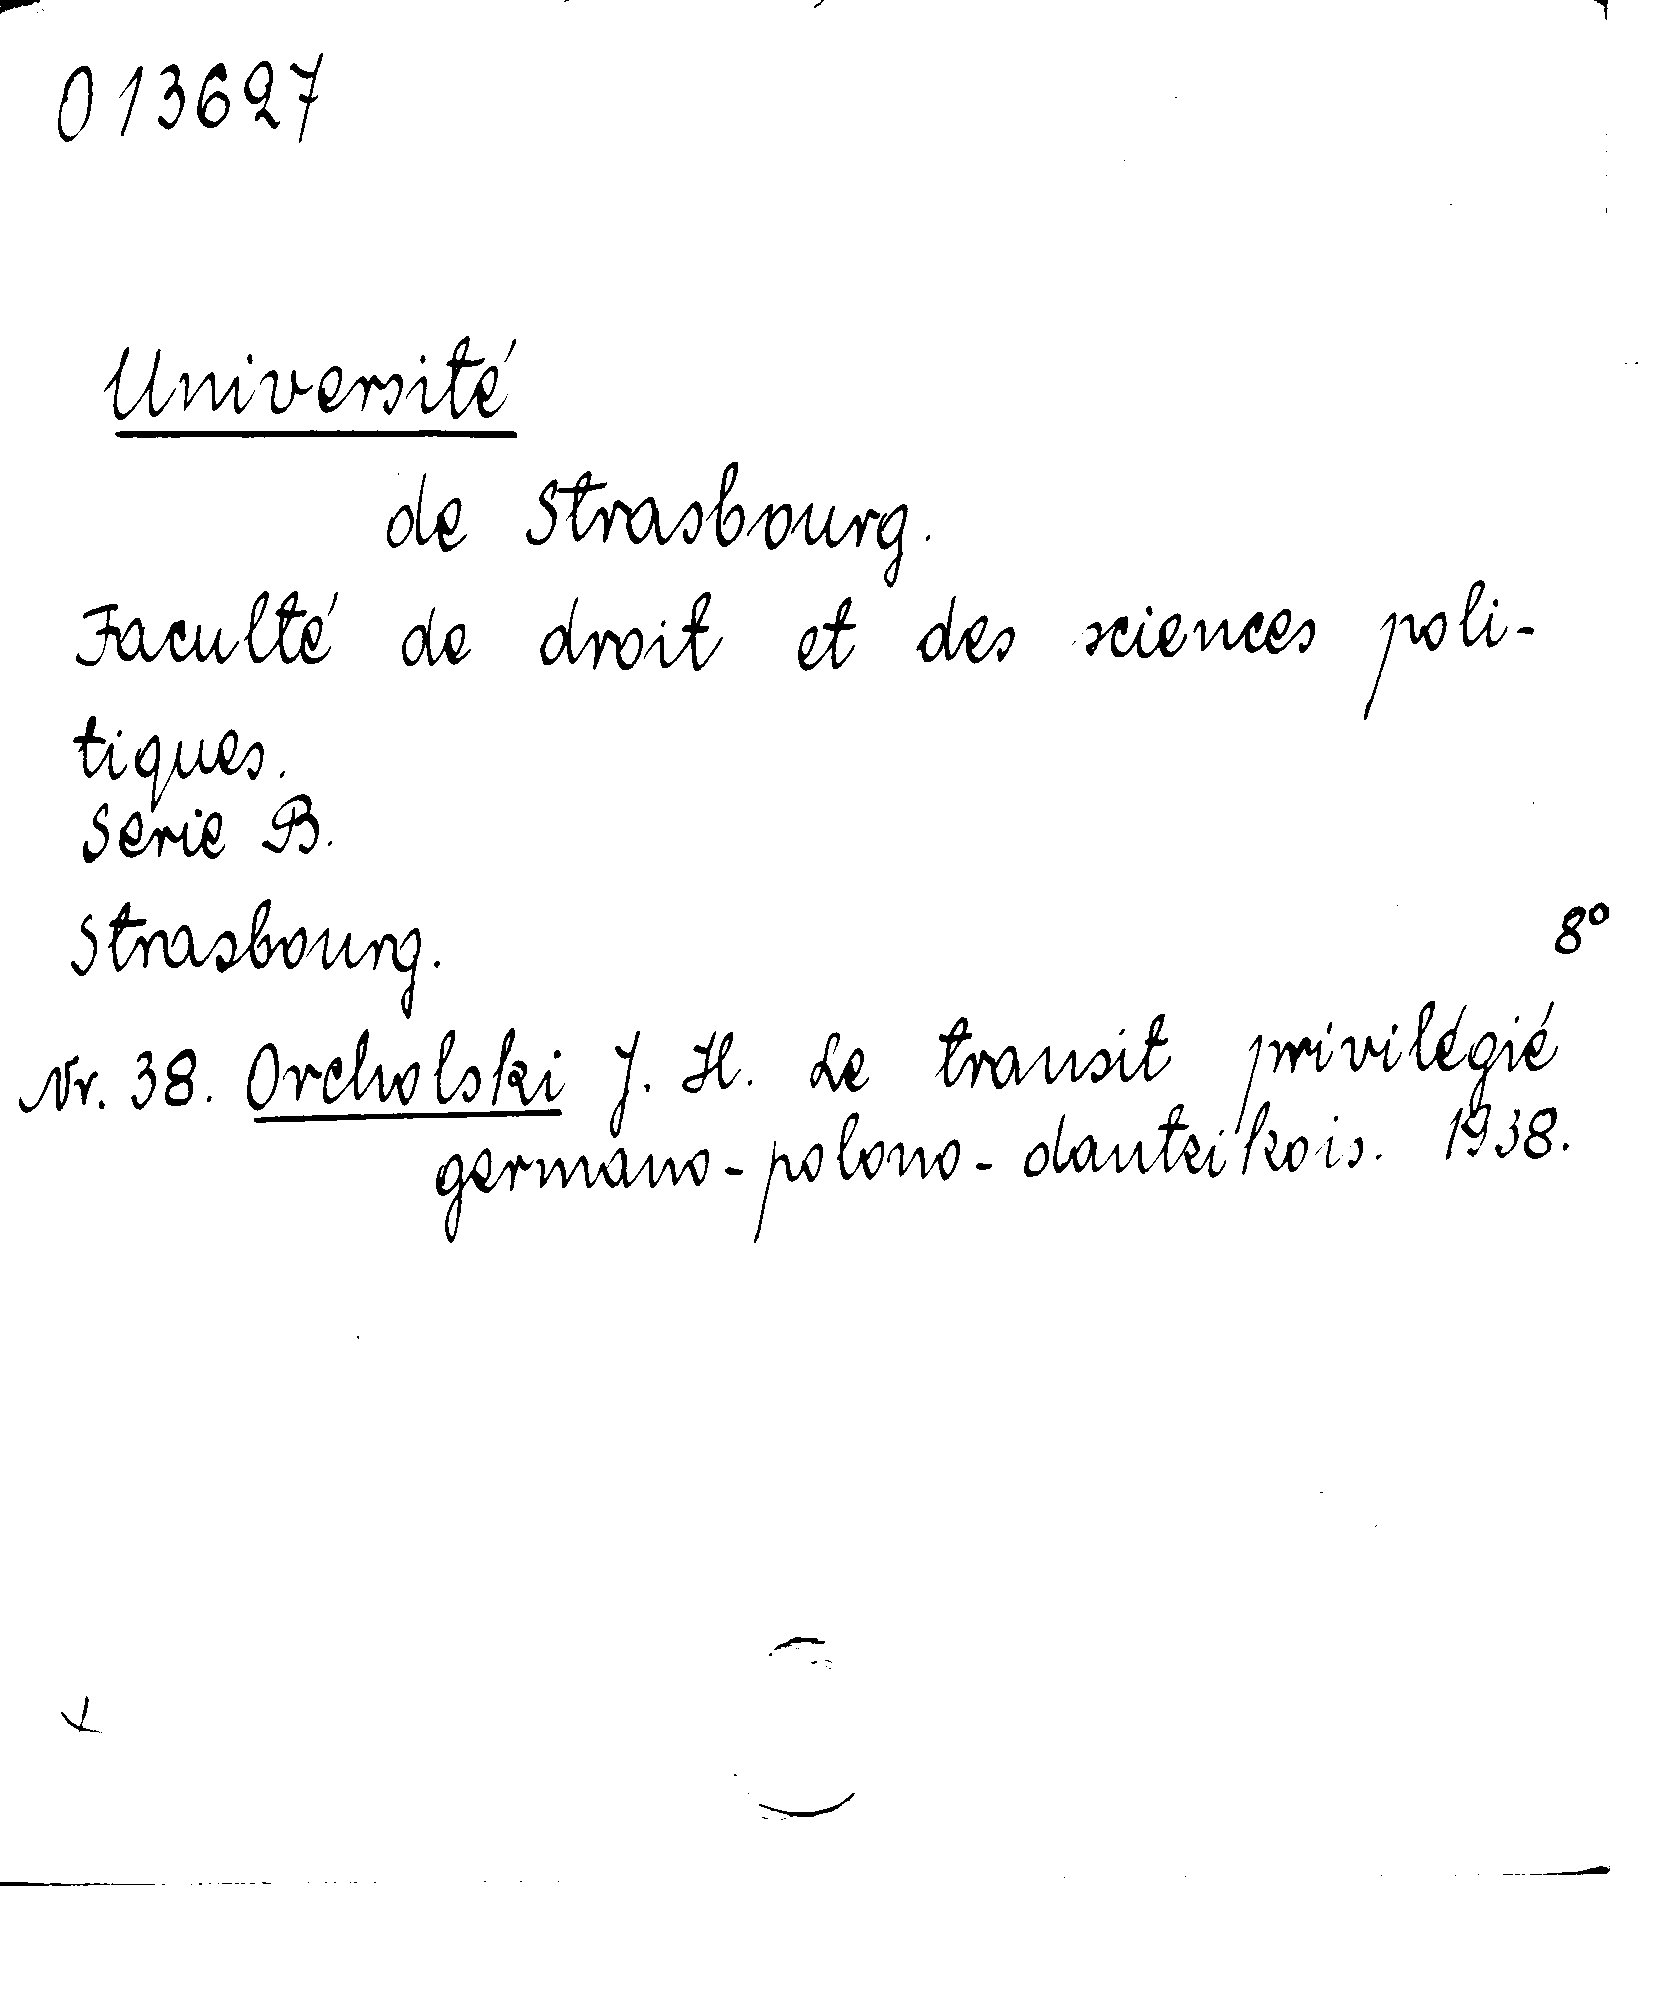 013627
Université
de Strasbourg.
Faculté de droit et des sciences poli-
tiques.
Serie B.
Strasbourg. 8°
Nr. 38. Orcholski J. H. Le transit privilégié
germano-polono-dantzikois. 1938.